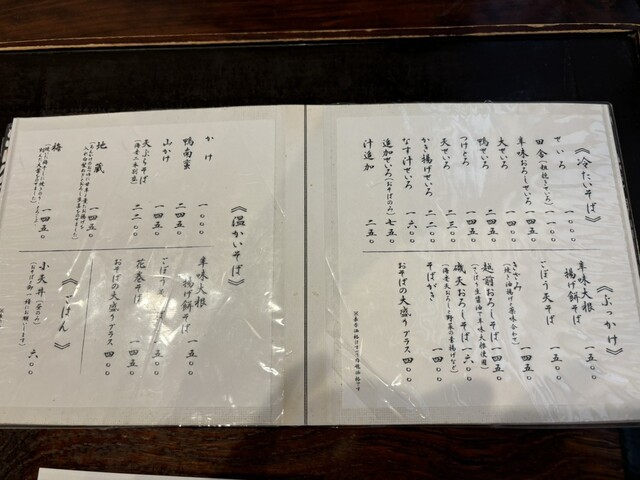 《冷たいそば》
せいろ 一〇〇〇
田舎(粗挽きせいろ) 一一〇〇
辛味おろしせいろ 一四五〇
大せいろ 一四〇〇
鴨せいろ 二四五〇
つけとろ 一四五〇
天せいろ 二三〇〇
かき揚げせいろ 二二〇〇
なす汁せいろ 一六〇〇
追加せいろ(おそばのみ) 七五〇
汁追加 二五〇
《ぶっかけ》
辛味大根
揚げ餅そば 一五〇〇
ごぼう天そば 一五〇〇
(焼き油揚げと薬味合わせ) 一四五〇
越前おろしそば 一四五〇
磯天おろしそば 一六〇〇
そばがき 一四〇〇
おそばの大盛り プラス 四〇〇
《温かいそば》
かけ 一〇〇〇
鴨南蛮 二四五〇
山かけ 一四五〇
天ぷらそば 二二〇〇
(海老二本別盛)
地蔵 一四五〇
梅 一四五〇
辛味大根
揚げ餅そば 一五〇〇
ごぼう天そば 一五〇〇
花巻そば 一四五〇
おそばの大盛り プラス 四〇〇
《ごはん》
小天丼(昼のみ) 六〇〇